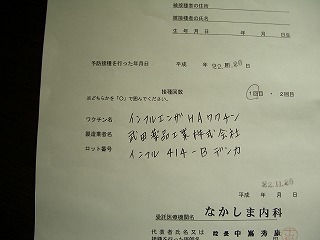 被接種者の住所
被接種者の氏名
生 年 月 日 年 月 日生
予防接種を行った年月日 平成 年22.11.20日
接種回数
※どちらかを「○」で囲んでください。 1回目 ・ 2回目
ワクチン名 インフルエンザHAワクチン
製造業者名 武田薬品工業株式会社
ロット番号 インフル 414-B デンカ
平成 年 月 日
22.11.20
受託医療機関名 なかしま内科
代表者氏名又は 院長 中嶋秀
接種を行った医師名